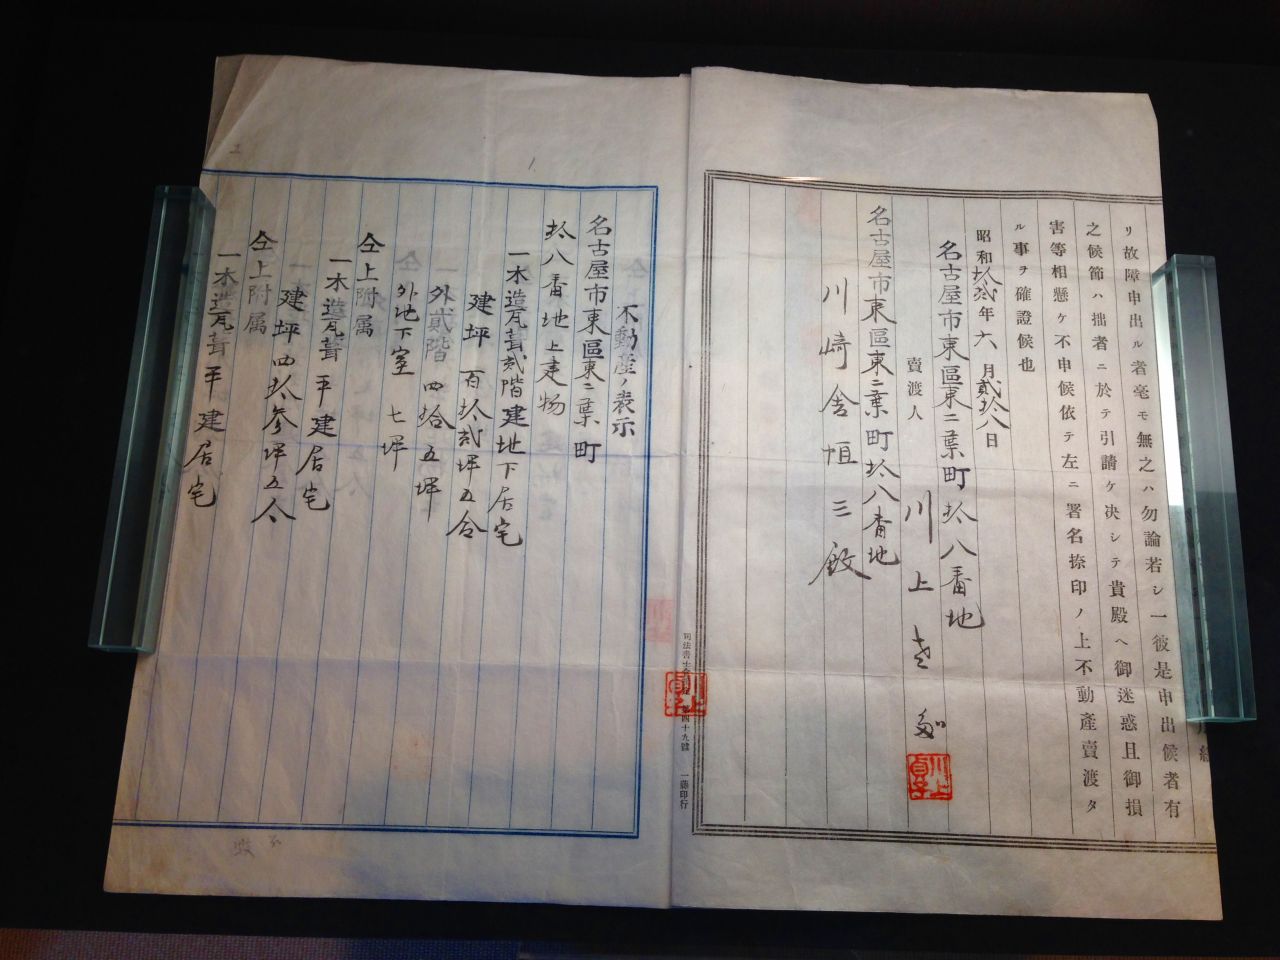 リ故障申出ル者毫モ無之ハ勿論若シ一彼是申出候者有
之候節ハ拙者ニ於テ引請ケ決シテ貴殿ヘ御迷惑且御損
害等相懸ケ不申候依テ左ニ署名捺印ノ上不動產賣渡タ
ル事ヲ確證候也
昭和拾弐年六月貳拾八日
名古屋市東區東二葉町拾八番地
賣渡人 川上
川上貞子
名古屋市東區東二葉町拾八番地
川崎舎恒三殿
司法書士 第四十九號 一藤印行
川上貞子
不動産ノ表示
名古屋市東區東二葉町
拾八番地上建物
一木造瓦葺弐階建地下居宅
建坪 百拾弐坪五合
外貳階 四拾五坪
外地下室 七坪
仝上附属
一木造瓦葺平建居宅
建坪四拾参坪五合
仝上附属
一木造瓦葺平建居宅